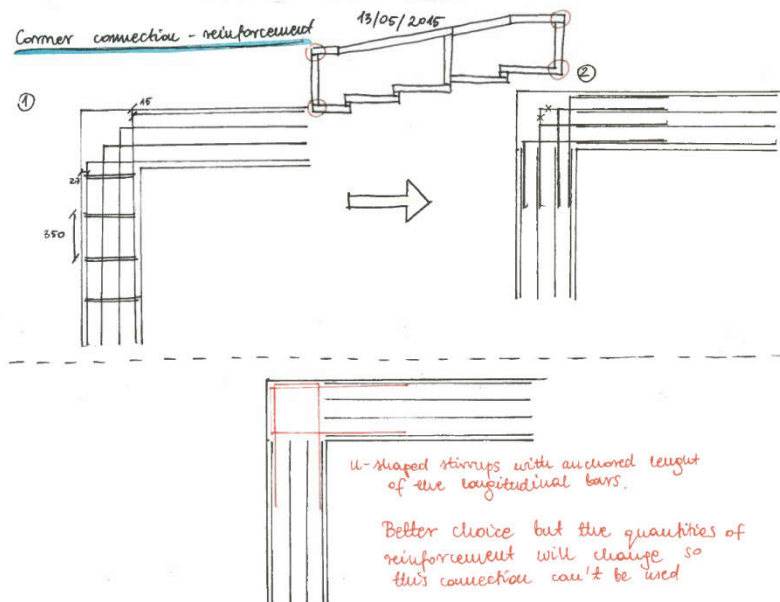 Corner connection - reinforcement
13/05/2015
1
2
15
27
350
U-shaped stirrups with anchored lenght
of the longitudinal bars.
Better choice but the quantities of
reinforcement will change so
this connection can't be used